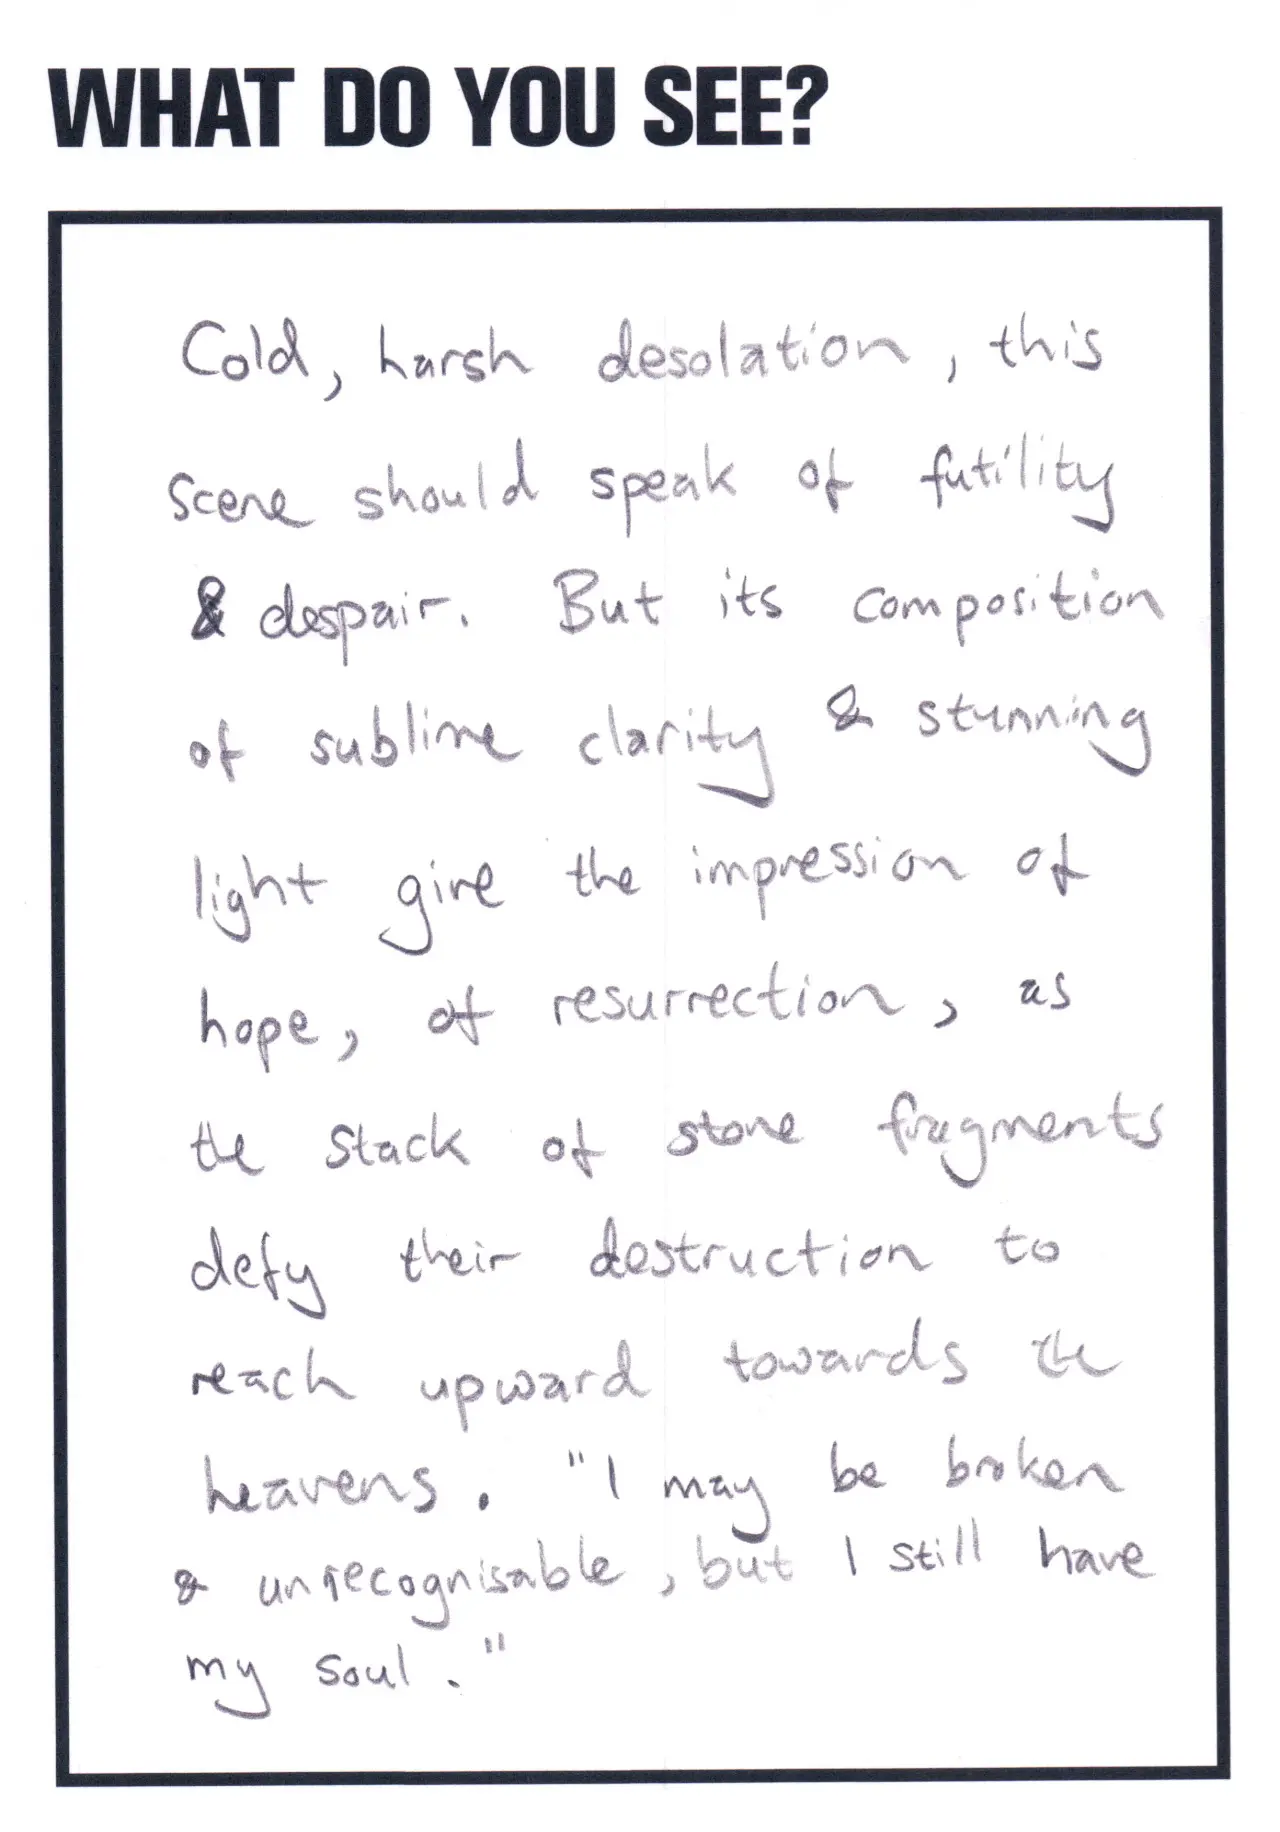 WHAT DO YOU SEE?
Cold, harsh desolation, this
scene should speak of futility
& despair. But its composition
of sublime clarity & stunning
light give the impression of
hope, of resurrection, as
the stack of stone fragments
defy their destruction to
reach upward towards the
heavens. "I may be broken
& unrecognisable, but I still have
my soul."